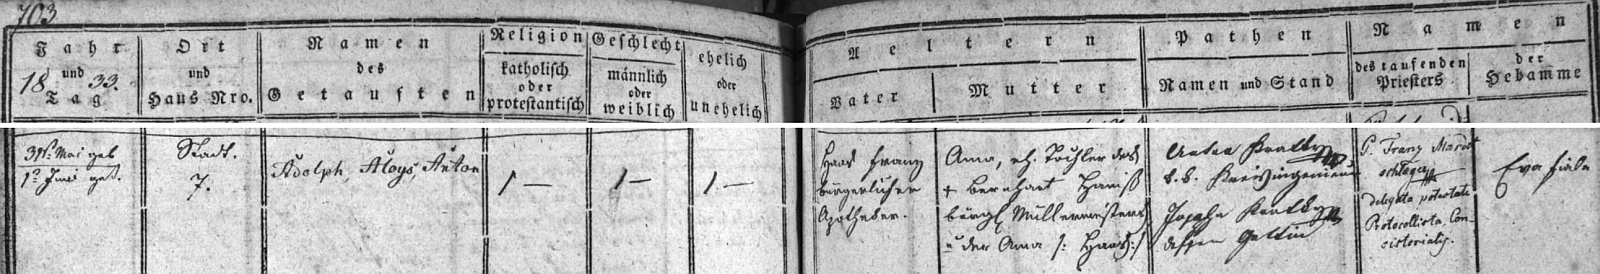 703
Jahr und Tag
1833.
Ort und Haus Nro.
Namen des Getauften
Religion
katholisch oder protestantisch
Geschlecht
männlich oder weiblich
ehelich oder unehelich
Aeltern
Vater
Mutter
Pathen
Namen und Stand
Namen
des taufenden Priesters
der Hebamme
31t. Mai geb
1t. Juni get.
Stadt.
7.
Adolph, Aloys, Anton
1 —
1 —
1 —
Haas Franz
bürgerlicher
Apotheker.
Anna, eh. Tochter des
+ Bernhart Haniß
bürgl. Müllermeisters
u der Anna /: Haas :/
Anton Kratky
k. k. Kreisingenieur
Josepha Kratky
dessen Gattin
P. Franz
delegata potestate
Protocollista Con-
sistorialis.
Eva Fiala